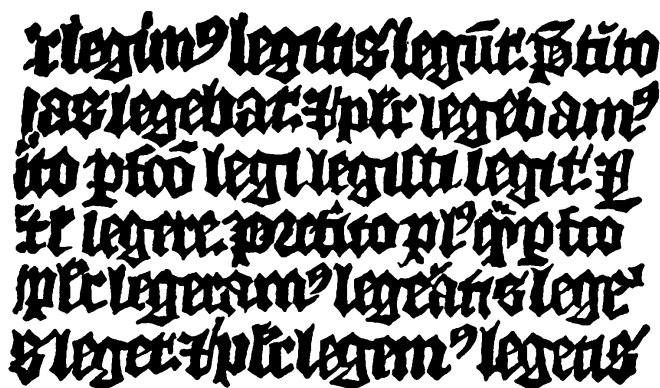 r legimꝰ legitis legūt. p̄tito
as legebat. ⁊ płr legebamꝰ
ito pfcō legi legiſti legit.
ł legere. p̄terito plꝰq̄ꝑfco
płr legeramꝰ legeātis lege
s leget. ⁊ płr legemꝰ legetis